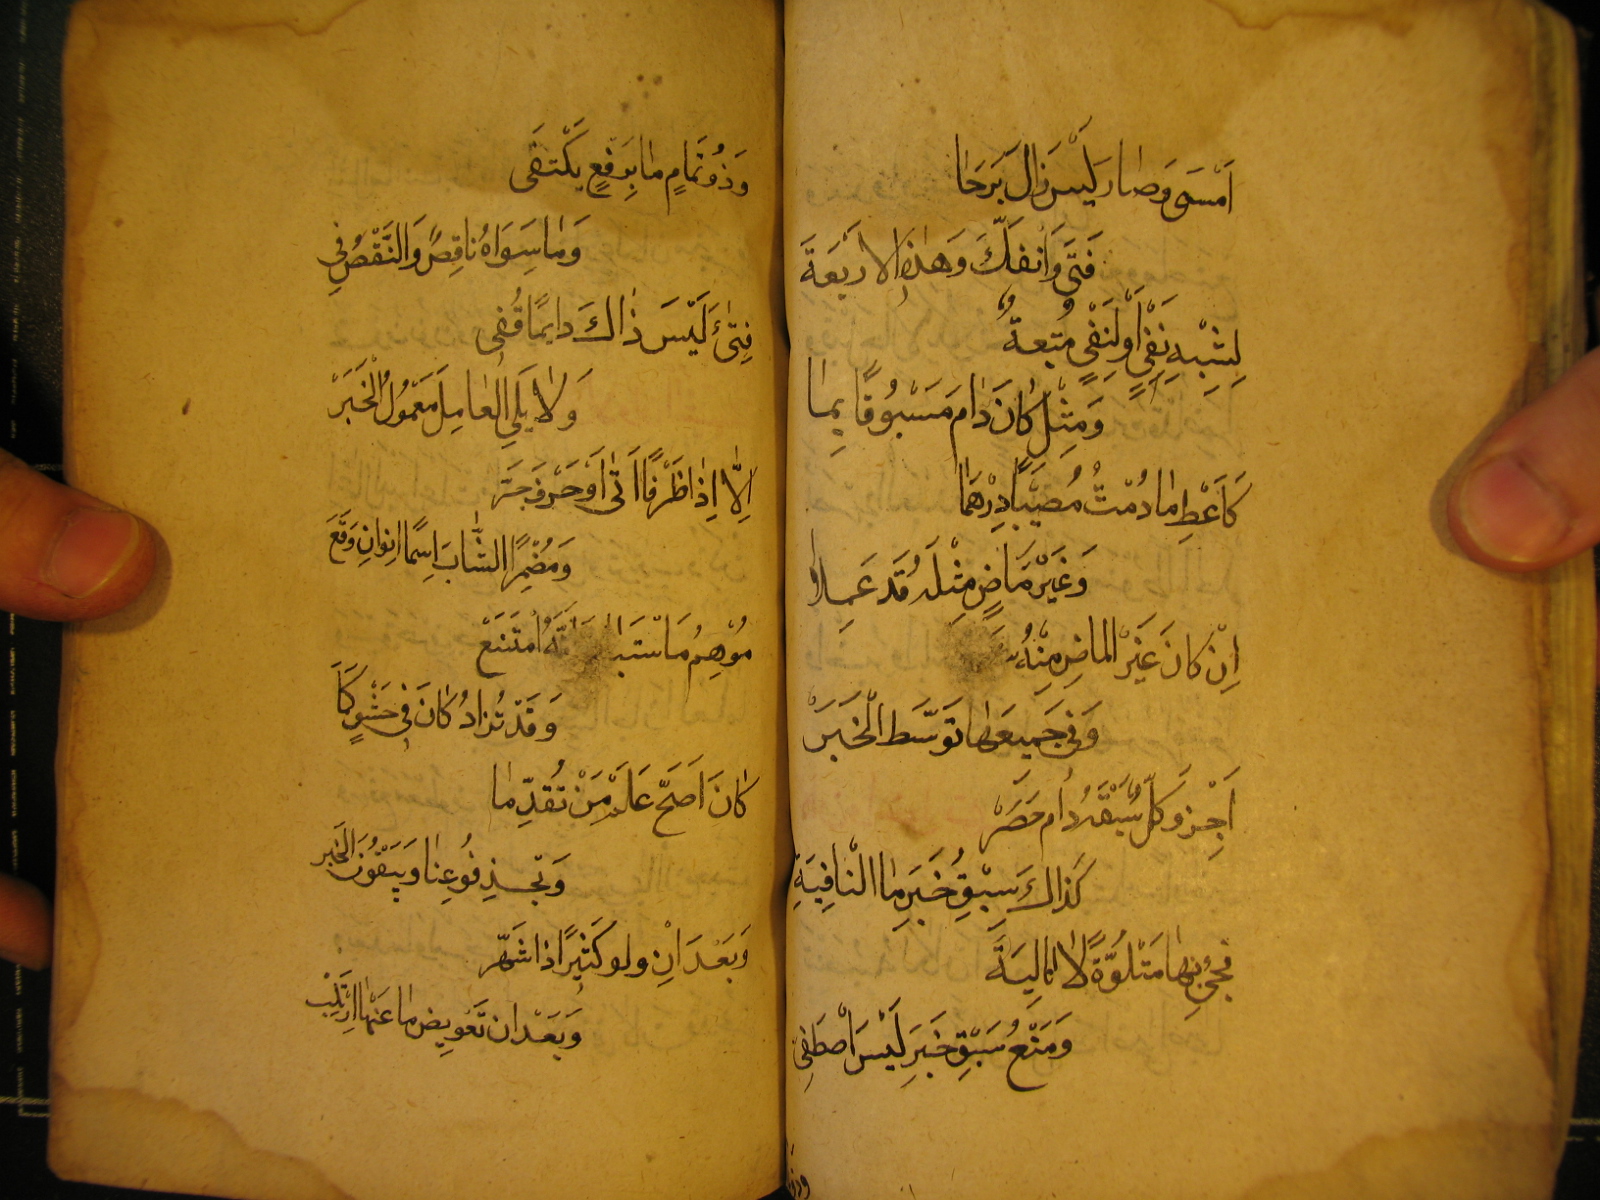 اَمْسَى وَصَارَ لَيْسَ زَالَ بَرَحَا
فَتَى وَانْفَكَّ وَهَذِه الاَرْبَعَة
لِشِبْهِ نَفْيٍ اَوْ لِنَفْيٍ مُتبعَةْ
وَمِثْلُ كَانَ دَامَ مَسْبُوقًا بِمَا
كَاَعْطِ مَا دُمْتَ مُصِيْبًا دِرْهَمَا
وَغَيْرُ مَاضٍ مِثْلَهُ قَد عَمِلاَ
اِنْ كَانَ غَيْرُ المَاضِ مِنْهُ
وَفِى جَمِيعِهَا تَوَسُّط الْخَبَرْ
اَجِزْ وَكُلٌّ سَبْقَهُ دَام حَضَرْ
كَذَاكَ سَبْقِ خَبَرٍ مَا النَافِيَةِ
فَجِئْ بِهَا مَتْلُوَّةً لاَ تَالِيَةَ
وَمَنْعُ سَبْقِ خَبَرِ لَيْسَ اصْطُفِى
وَذُو تَمَامٍ مَا بِرَفْعٍ يَكْتَفِى
وَمَا سِوَاهُ نَاقِصٌ وَالنَّقْصُ فِى
فَتِئَ لَيْسَ ذَاكَ دايمًا قُفِى
وَلاَ يَلِى الْعَامِلَ مَعْمُولُ الْخَبَرْ
اِلاَّ اِذَا ظَرْفًا اَتَى اَوْ حَرْفَ جَرّ
وَمُضْمِرَ الشَّانِ اسِمًا انْوِ اِنْ وَقَعَ
مُوْهِمُ مَا اسْتَبَانَ اَنَّهُ امْتَنَعْ
وَقَدْ تُزَادُ كَانَ فِى حَشْوٍ كَمَا
كَانَ اَصَحَّ عِلْمَ مَنْ تَقَدَّمَا
وَيَحْذِفُونِهَا وَيَبْقُونَ الخَبَر
وَبَعْدَ اِنْ ولو كَثِيْرًا ذَا شَهَر
وَبَعْدَ ان تَعْوِيض مَا عَنْهَا ارْتُكِبْ